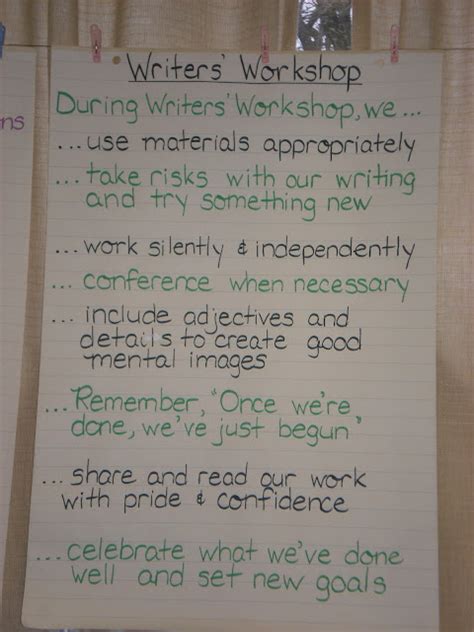 Writers' Workshop
During Writers' Workshop, we...
ns
...use materials appropriately
...take risks with our writing
and try something new
...work silently & independently
...conference when necessary
...include adjectives and
details to create good
mental images
...Remember, "Once we're
done, we've just begun"
...share and read our work
with pride & confidence
...celebrate what we've done
well and set new goals